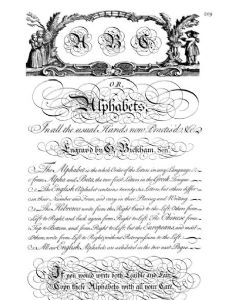 209
A. B. C.
OR,
Alphabets,
In all the usual Hands now Practis'd &c.
Engrav'd by G. Bickham, Senr.
The Alphabet is the whole Order of the Letters in any Language
from Alpha and Beta, the two first Letters in the Greek Tongue.
The English Alphabet contains twenty six Letters, but others differ
in their Number and Form, and vary in their Powers and Writing.
The Hebrews write from the Right Hand to the Left: Others from
Left to Right, and back again from Right to Left: the Chinese from
Top to Bottom, and from Right to Left: but the Europeans, and most
Others, write from Left to Right without Retrogression to the Left.
All our English Alphabets are exhibited in the two next Pages.
If you would write both Legible and Fair,
Copy these Alphabets with all your Care.